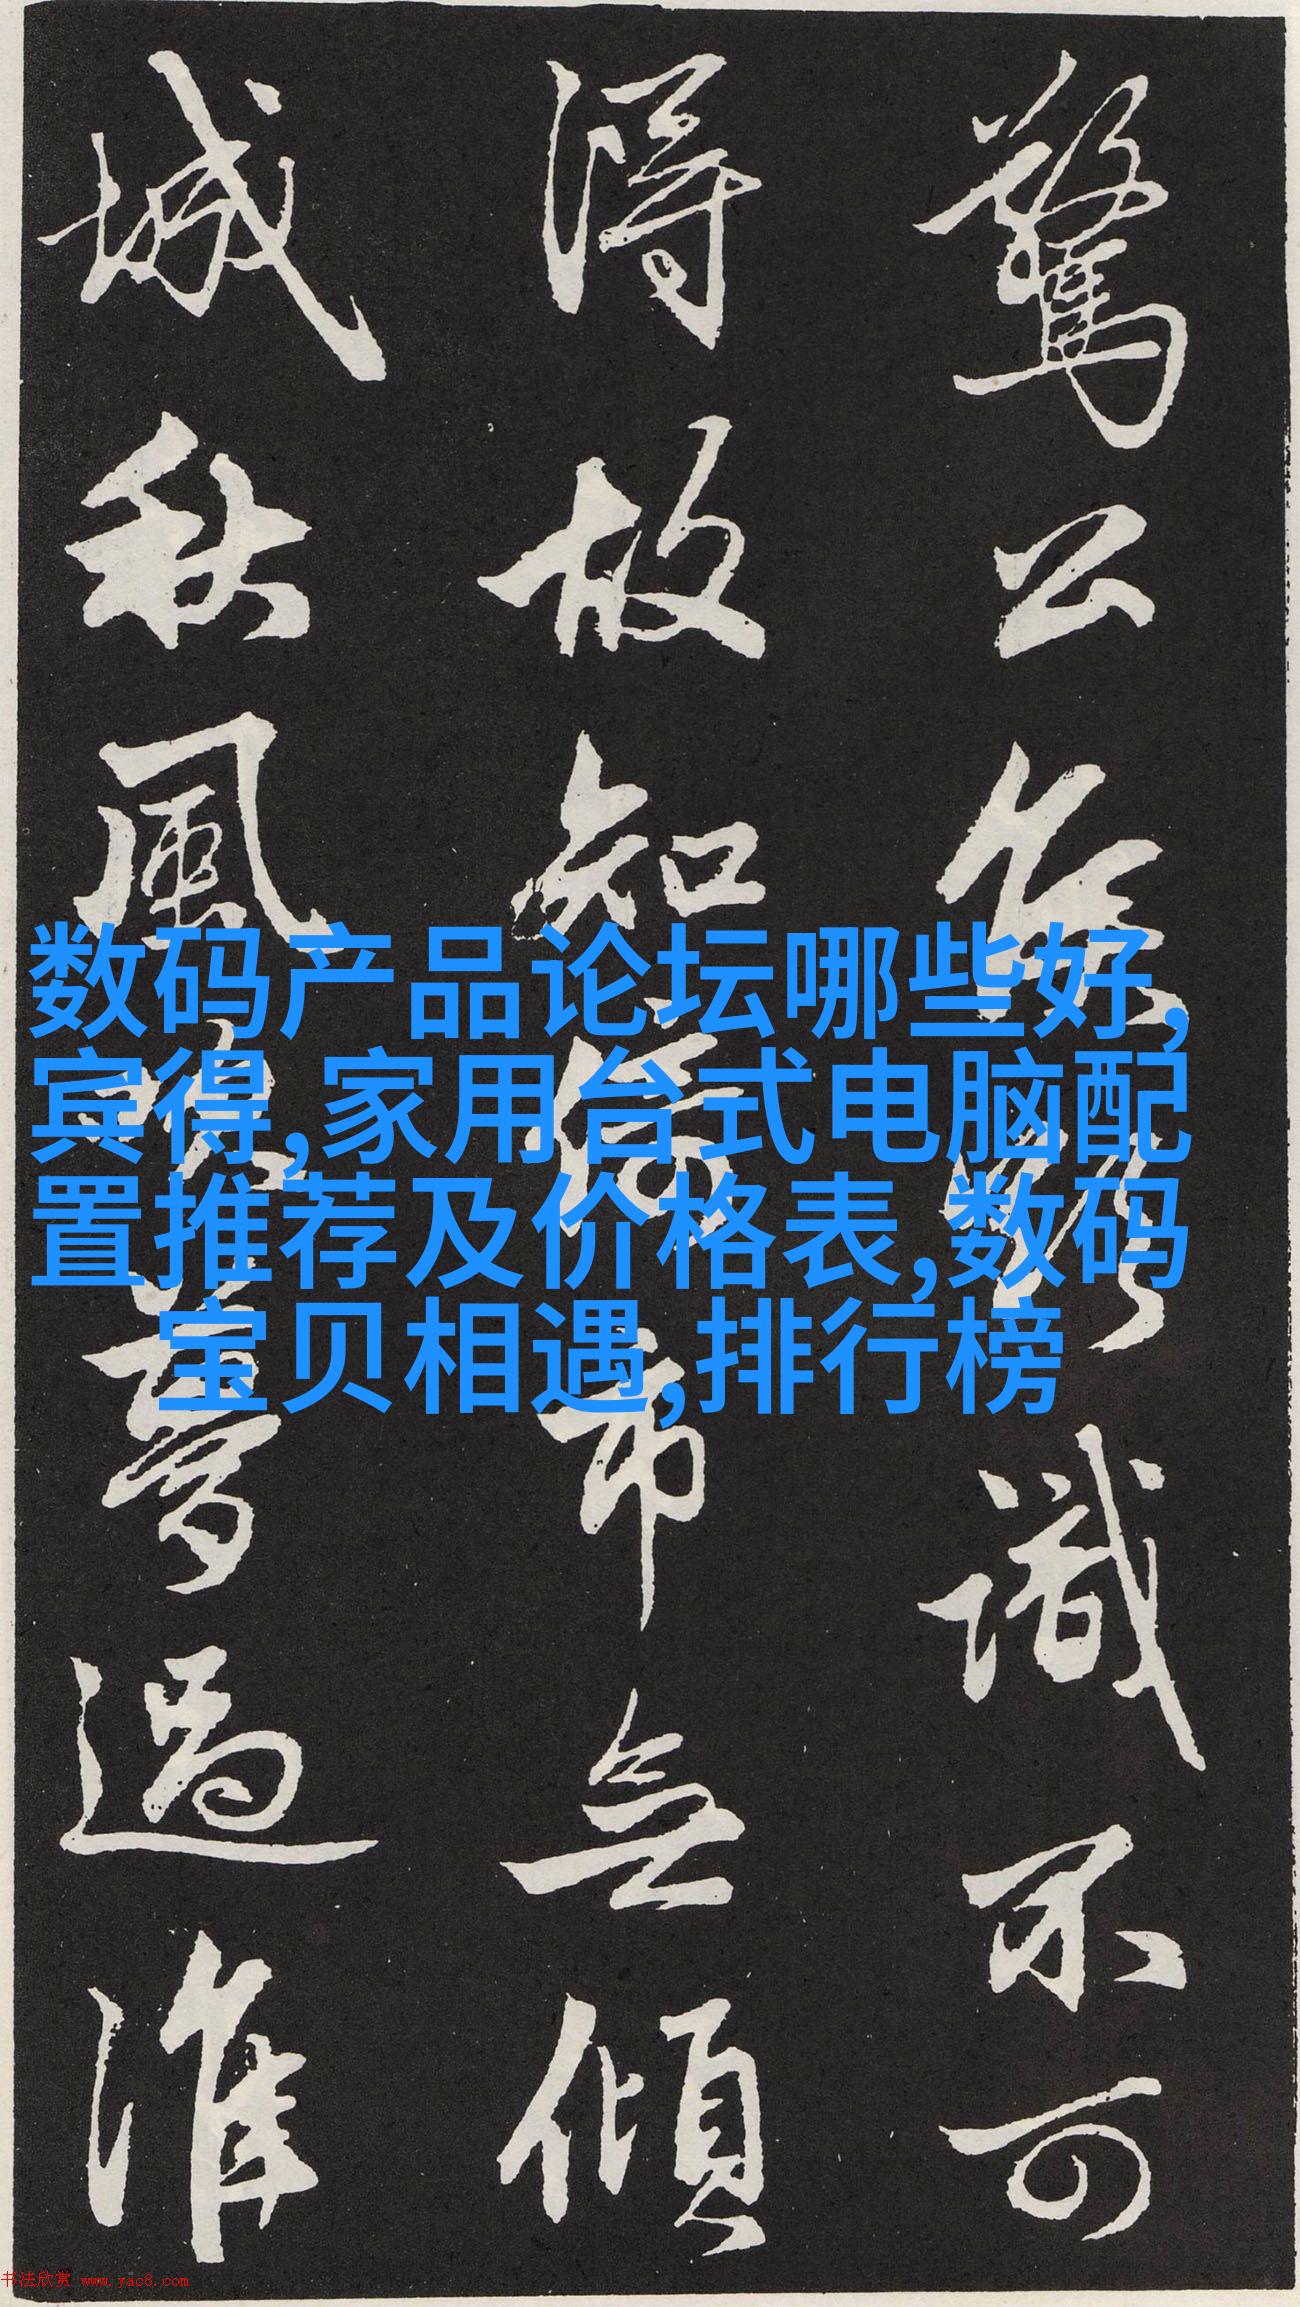 驚公侯 識不可
得故知 市無傾
城秋風 夢過淮
数码产品论坛哪些好,
宾得,家用台式电脑配
置推荐及价格表,数码
宝贝相遇,排行榜
书法欣赏 www.yac8.com